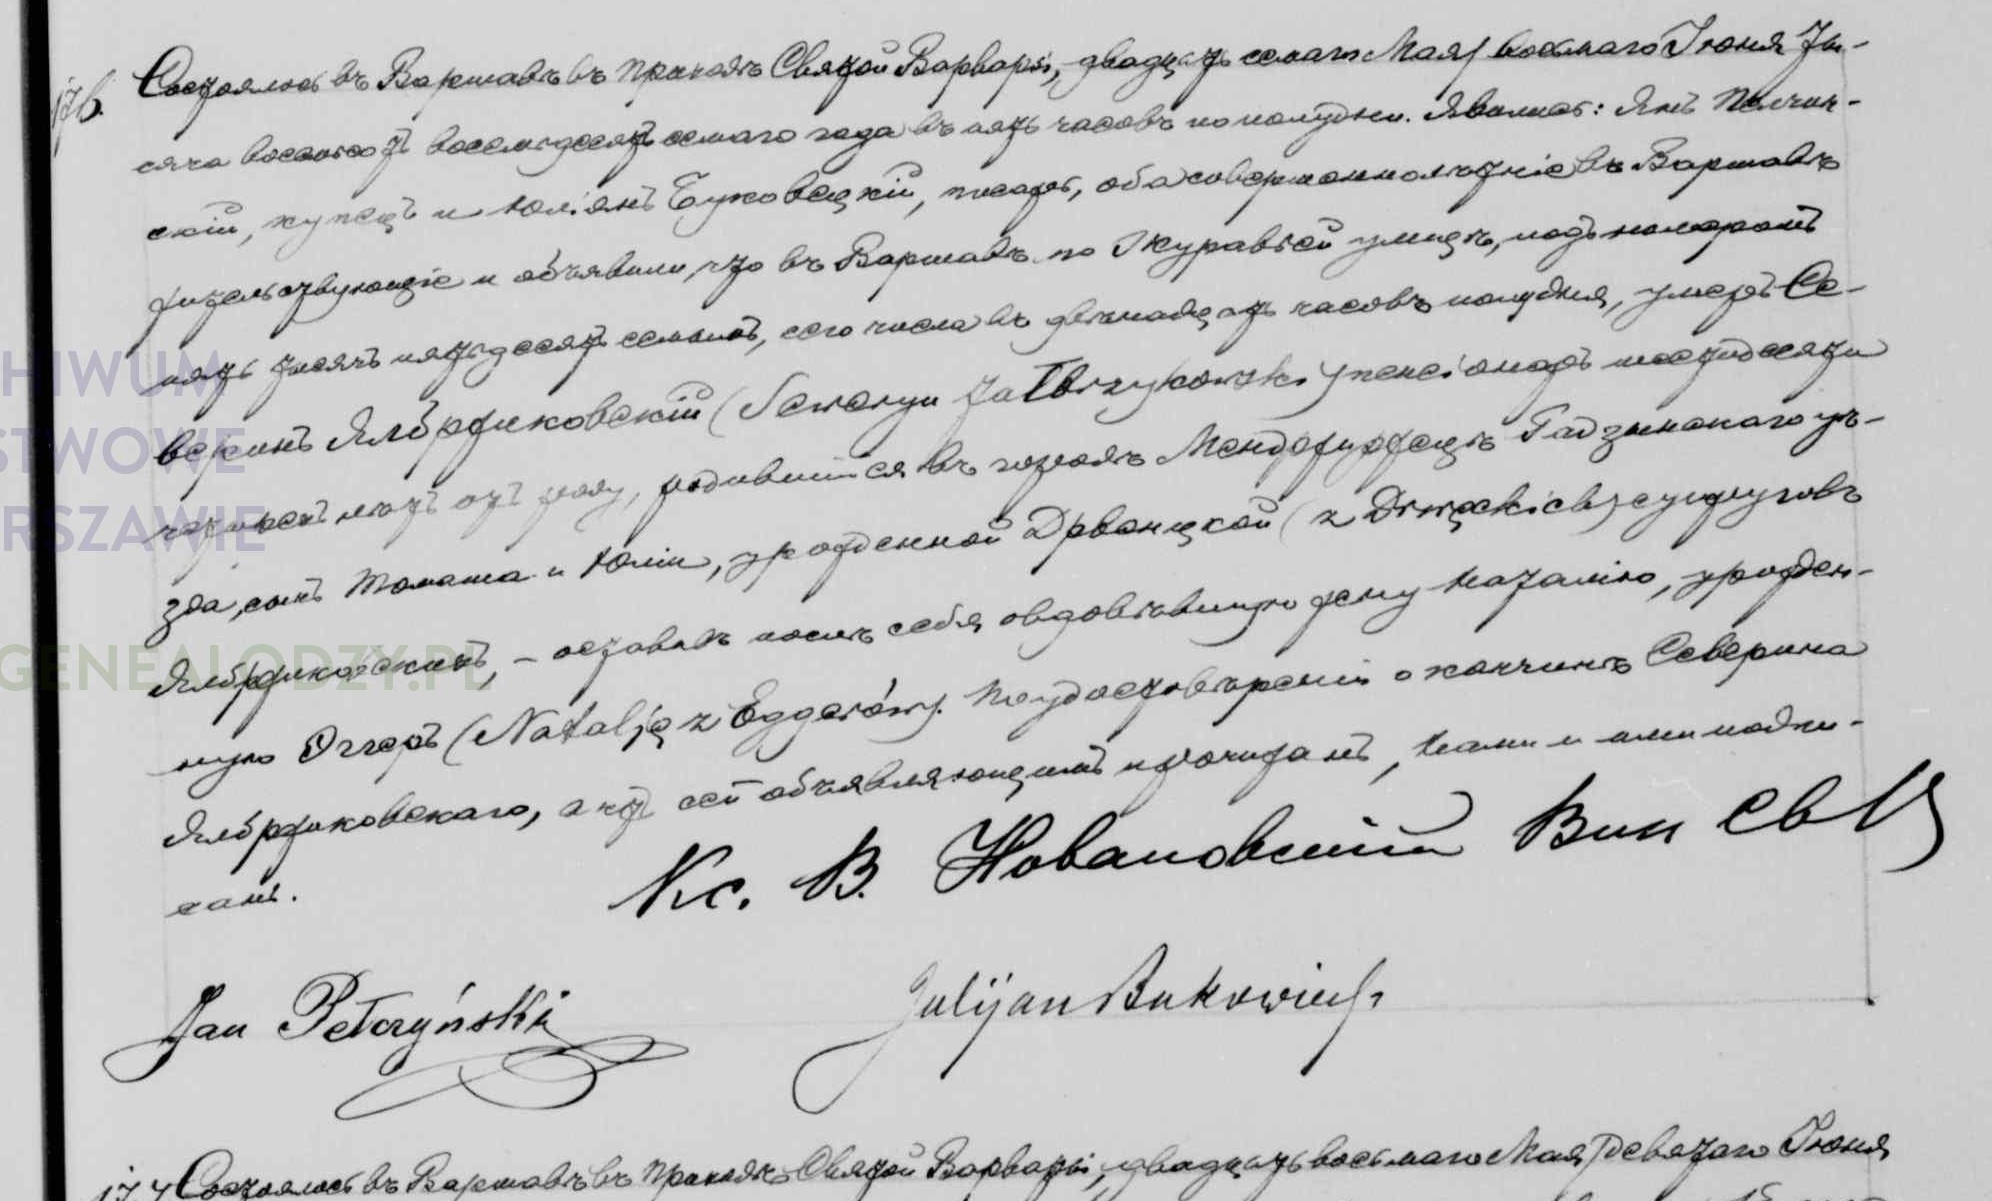 176.
Состоялось въ Варшавѣ въ приходѣ Святой Варвары, двадцать седьмаго Мая / восьмаго Іюня Ты-
сяча восемьсотъ восемьдесятъ седьмаго года въ пять часовъ по полудни. Явились: Янъ Пелчин-
скій, купецъ и Юліянъ Буковецкій, писарь, оба совершеннолѣтніе въ Варшавѣ
жительствующіе и объявили, что въ Варшавѣ по Журавьей улицѣ, подъ номеромъ
пять тысячъ пятьдесятъ седьмымъ, сего числа въ двѣнадцать часовъ полудня, умеръ Се-
веринъ Ялбржиковскій (Seweryn Jałbrzykowski) пенсіонеръ шестидесяти
четырехъ лѣтъ отъ роду, родившійся въ городѣ Мендзыржецѣ Радзынскаго уѣ-
зда, сынъ Томаша и Юліи, урожденной Дрвенцкой (z Drwęckich) супруговъ
Ялбржиковскихъ, – оставивъ послѣ себя овдовѣвшую жену Наталію, урожден-
ную Эггеръ (Natalją z Eggerów). По удостовѣреніи о кончинѣ Северина
Ялбржиковскаго, актъ сей объявляющимъ прочитанъ, Нами и ими подпи-
санъ.
Кс. В. Новаковскій Вик Св В
Jan Pełczyński Julijan Bukowiecki
177 Состоялось въ Варшавѣ въ приходѣ Святой Варвары, двадцать восьмаго Мая / девятаго Іюня
HIWUM
STWOWE
RSZAWIE
GENEALODZY.PL